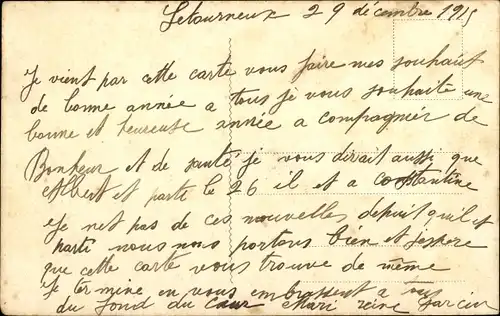 Letourneux 29 décembre 1915
Je vient par cette carte vous faire mes souhait
de bonne année a tous je vous souhaite une
bonne et heureuse année a compagnier de
Bonheur et de santé je vous dirait aussi que
Albert et parti le 26 il et a constantine
Je net pas de ces nouvelles depuit qu'il et
parti nous nous portons bien et j'espère
que cette carte vous trouve de même
Je termine en vous embrassent a tous
du fond du Cœur Mari reine Garcin